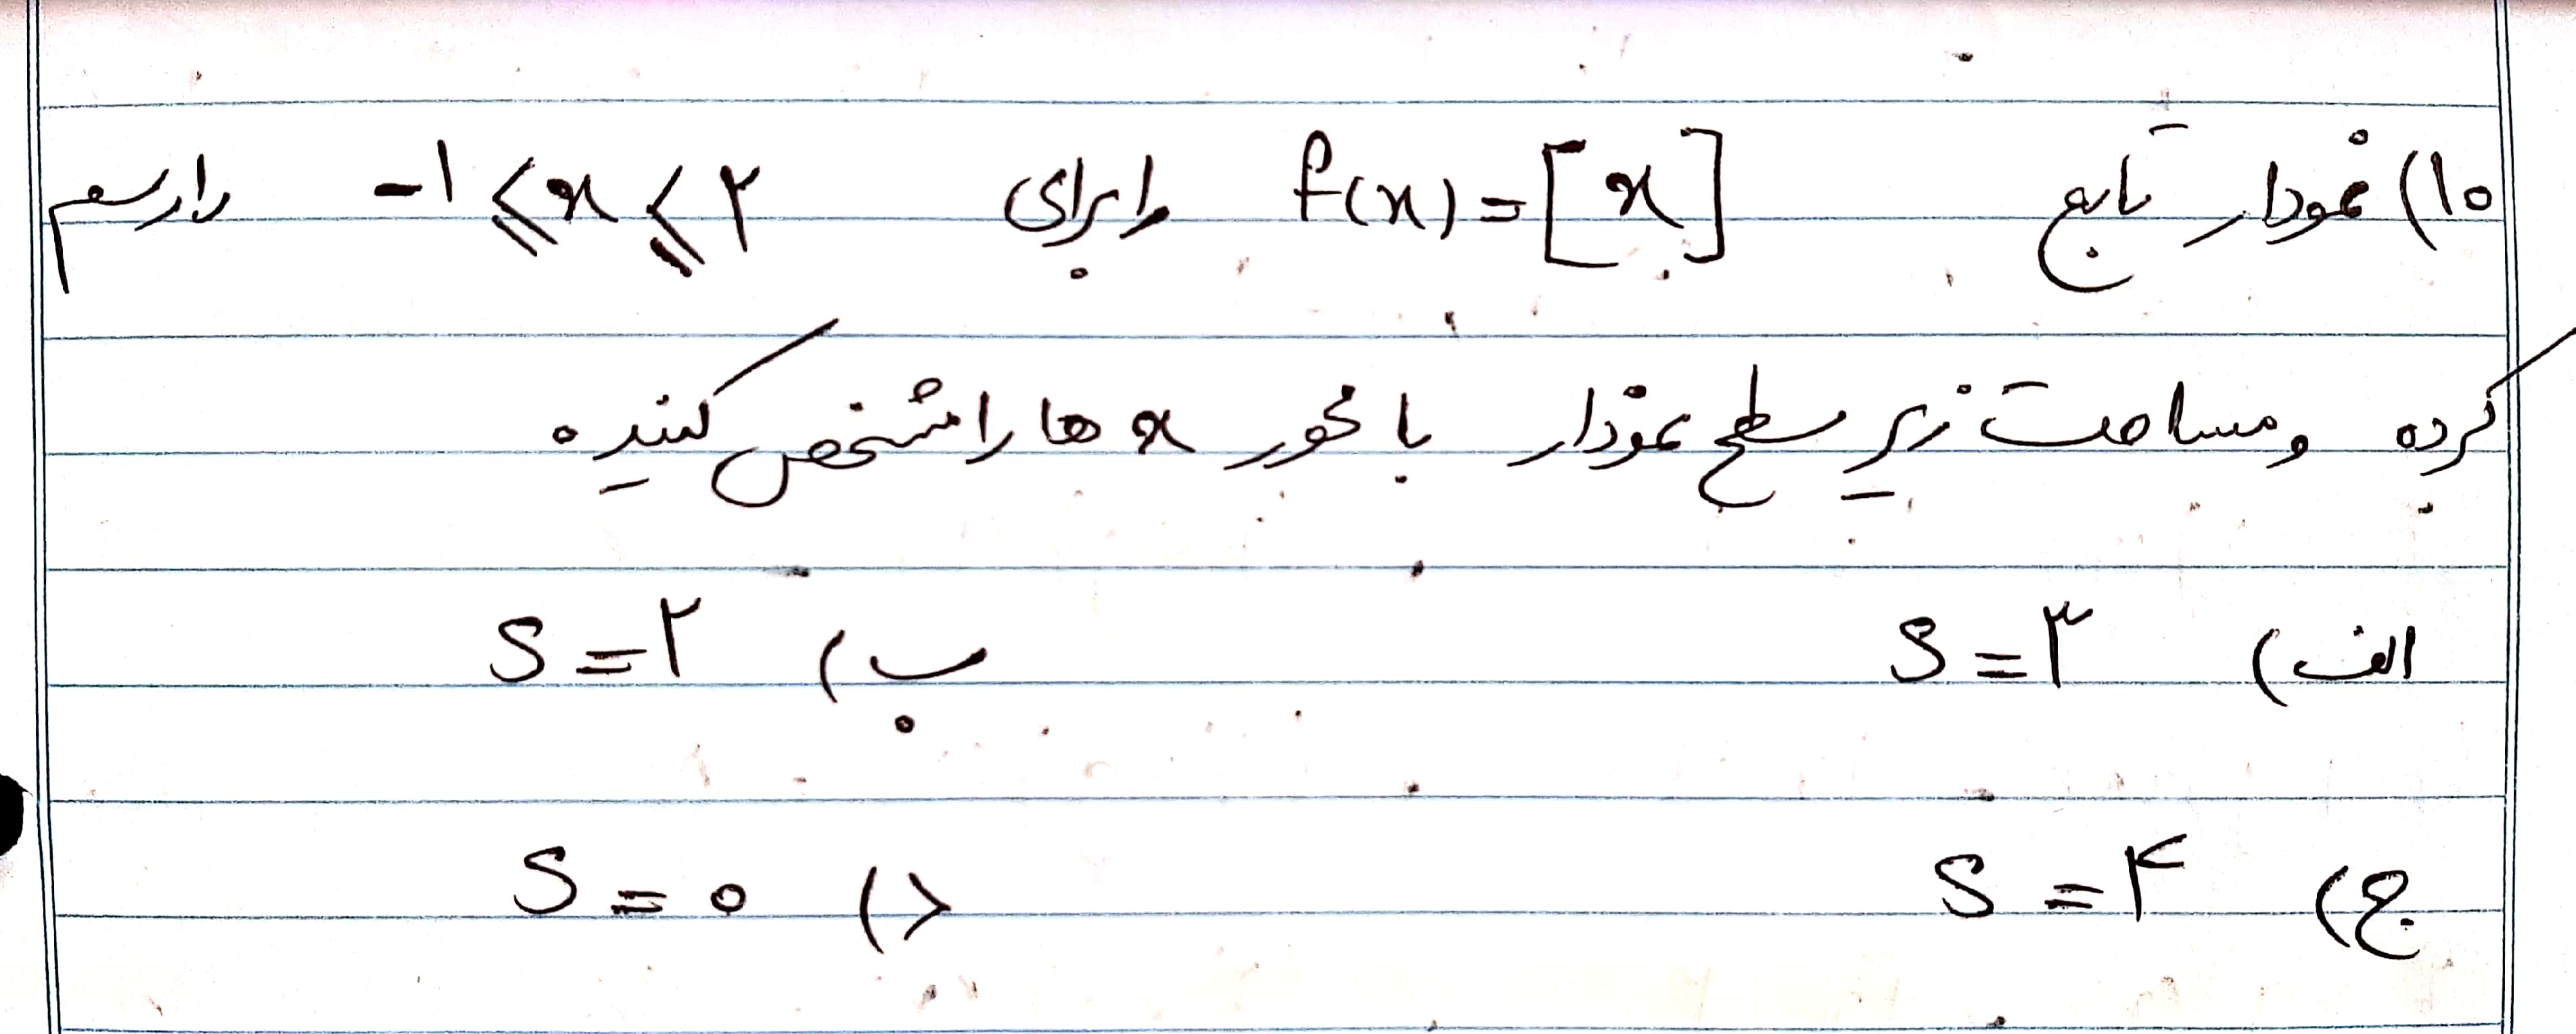 ۱۰) نمودار تابع f(x)=[x] را برای -۱⩽x⩽۲ را رسم
کرده و مساحت زیر سطح نمودار با محور x ها را مشخص کنید.
الف) S=۳ ب) S=۲
ج) S=۴ د) S=۰